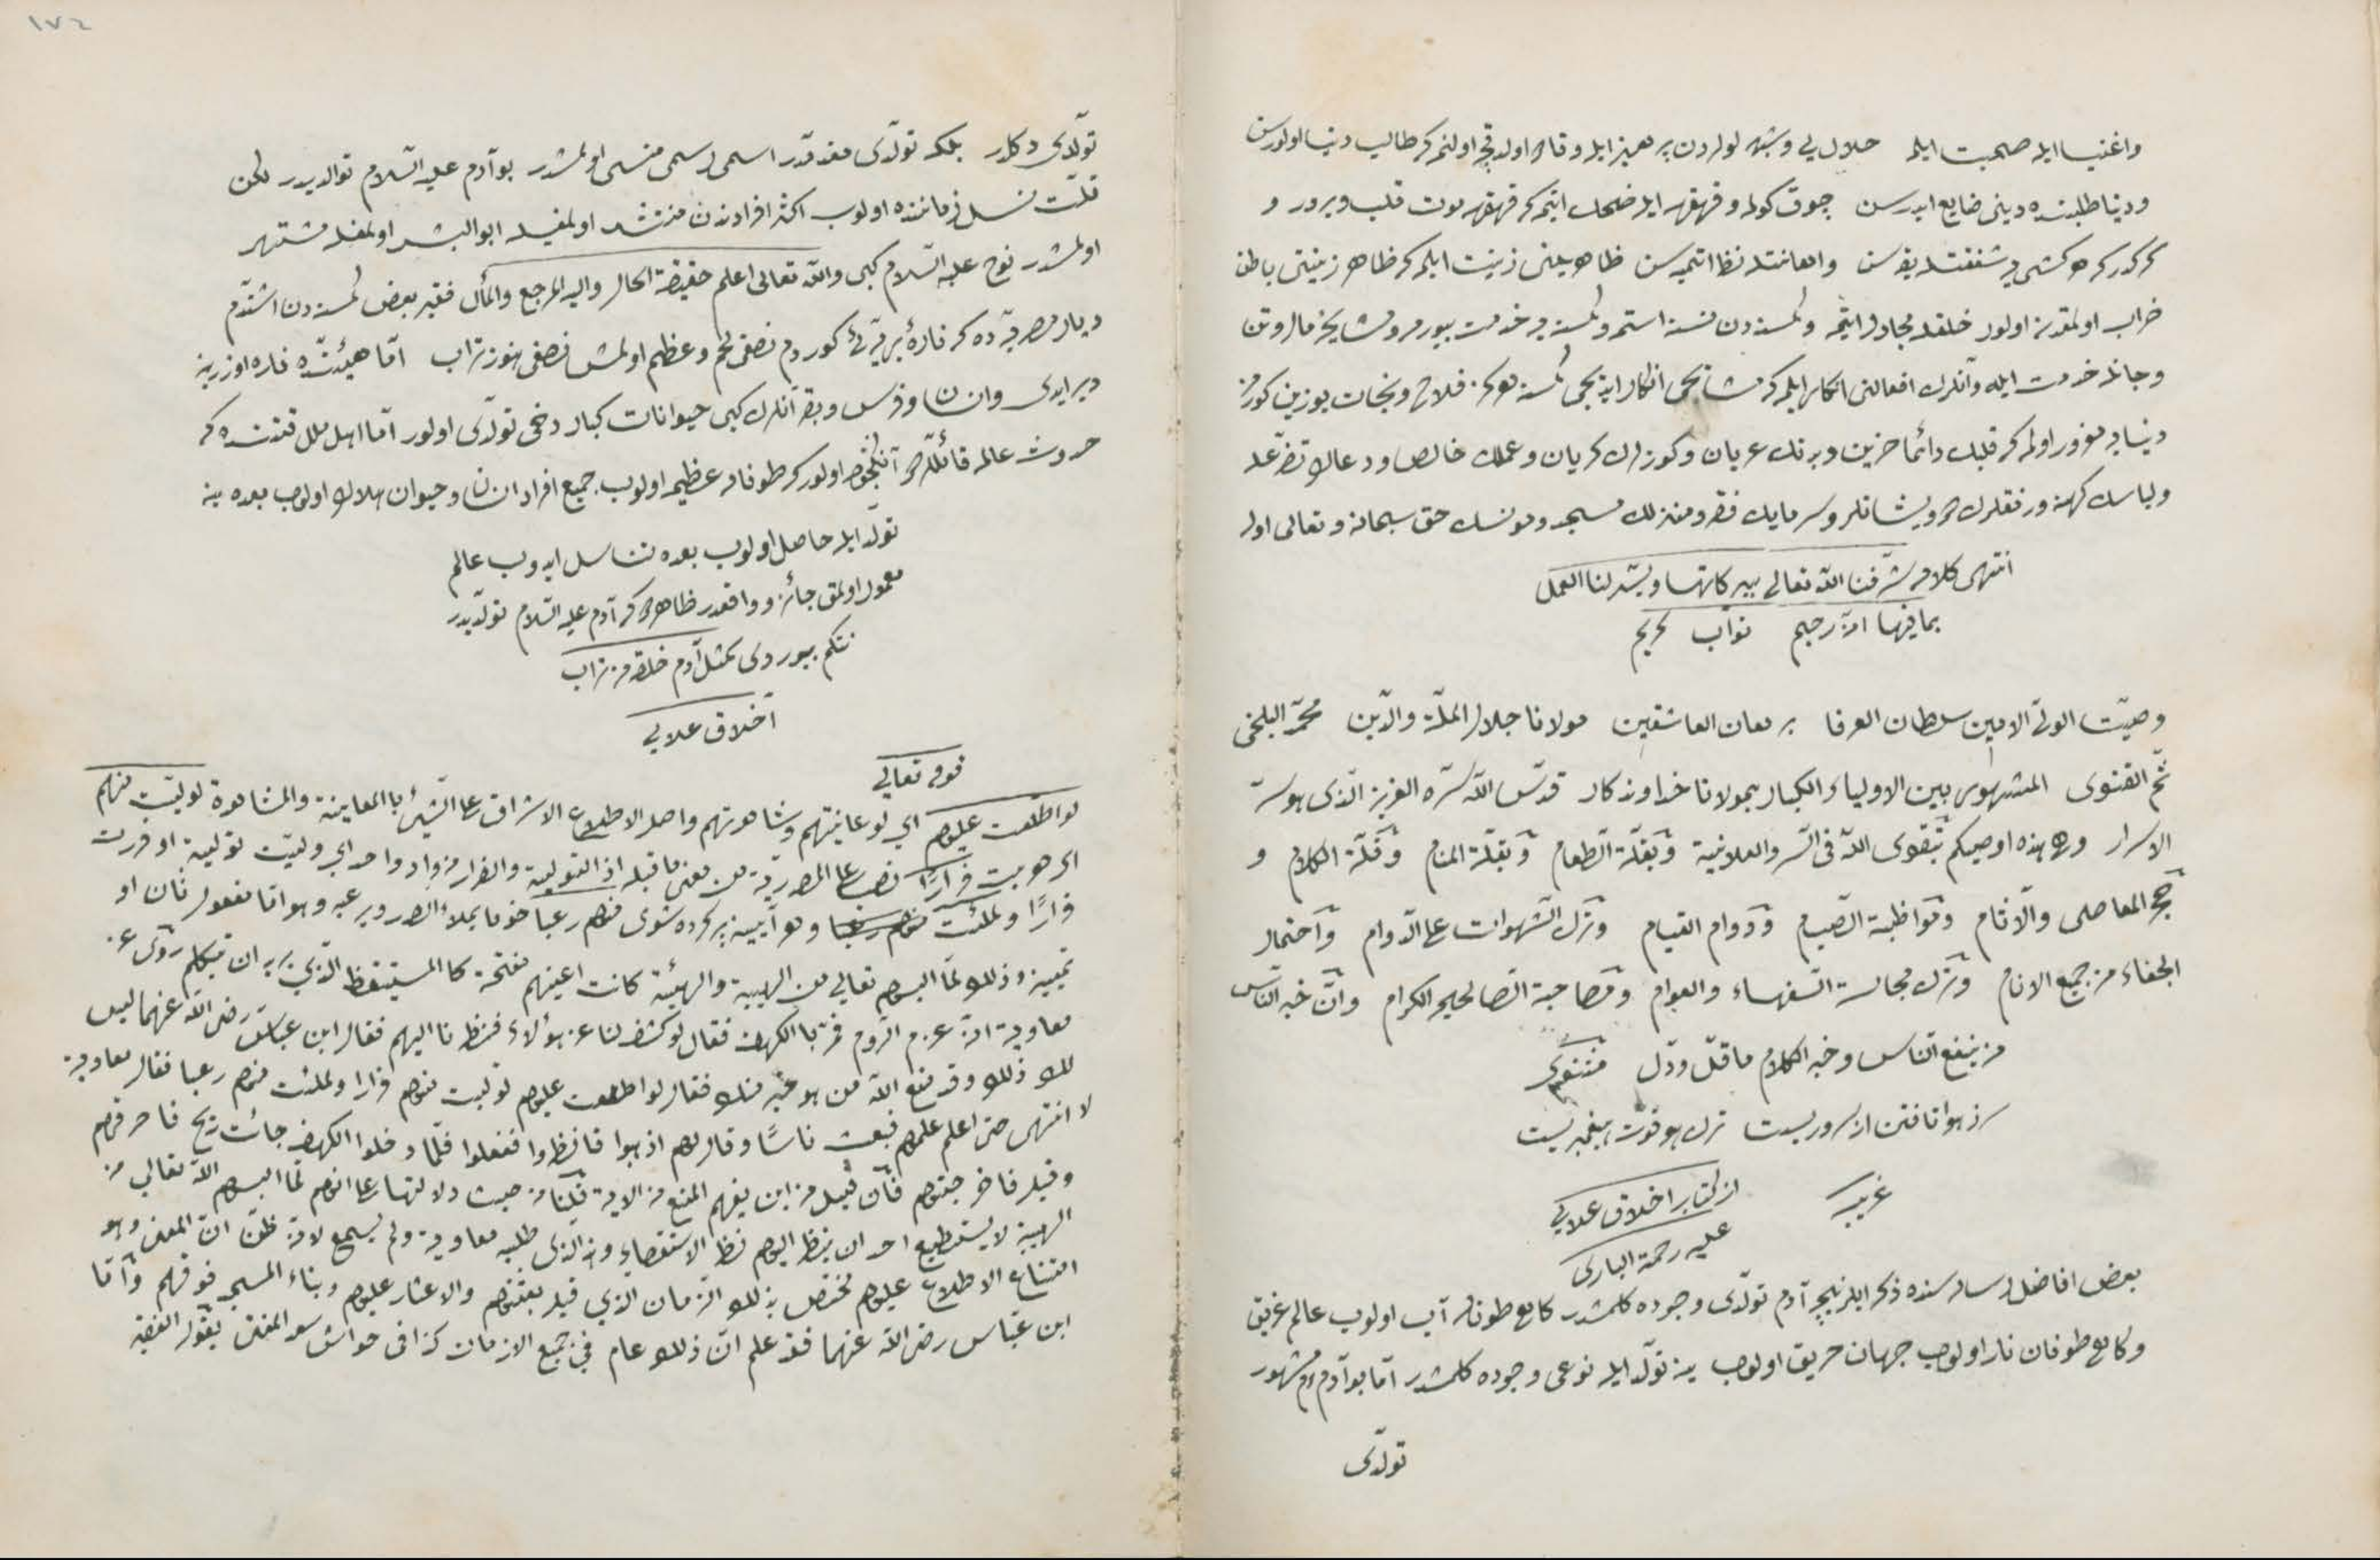 واغنيا ايله صحبت ايله حلال يي وشبهه لولردن پرهيز ايله و اولنمه كه طالب دنيا اولورسن
ودنيا طلبنده دينى ضايع ايدرسن چوق كولمه وقهقهه ايله ضحك ايتمه كه قهقهه موت قلب ويرور و
كركدر كه هر كشى يه شفقتله بقه سن واهانتله نظر اتميه سن ظاهرينى زينت ايلمه كه ظاهر زينتى باطن
خراب اولمقدن اولور خلقله مجادله ايتمه وكمسنه دن نسنه استمه وكمسنه يه خدمت بيورمه ومشايخه مال وتن
وجانله خدمت ايله وآنلرك افعالنى انكار ايلمه كه مشايخى انكار ايديجى كمسنه هركز فلاح ونجات يوزين كورمز
دنيايه مغرور اولمه كه قلبك دائما حزين وبدنك عريان وكوزلرك كريان وعملك خالص ودعاك تضرعله
ولباسك كهنه ورفقلرك درويشانلر وسرمايك فقر ومنزلك مسجد ومونسك حق سبحانه وتعالى اوله
انتهى كلامه شرفنا الله تعالى ببركاتها ويسر لنا العمل
بما فيها انه رحيم تواب كريم
وصيت المولى الامين سلطان العرفا برهان العاشقين مولانا جلال الملة والدين محمد البلخى
ثم القنوى المشهور بين الاولياء الكبار بمولانا خداوندكار قدس الله سره العزيز الذى هو سر
الاسرار وهى هذه اوصيكم بتقوى الله فى السر والعلانية وبقلة الطعام وبقلة المنام وقلة الكلام و
هجر المعاصى والآثام ومواظبة الصيام ودوام القيام وترك الشهوات على الدوام واحتمال
الجفاء من جميع الانام وترك مجالسة السفهاء والعوام ومصاحبة الصالحين الكرام وان خير الناس
من ينفع الناس وخير الكلام ما قل ودل مثنوى
سر ز هوا تافتن از سروريست ترك هوا قوت پيغمبريست
غريبه از كتاب اخلاق علائى
عليه رحمة البارى
بعض افاضل رساله سنده ذكر ايلر نيچه آدم تولدى وجوده كلمشدر كاهى طوفان آب اولوب عالم غريق
وكاهى طوفان نار اولوب جهان حريق اولوب ينه تولد ايله نوعى وجوده كلمشدر اما بو آدم مشهور
تولدى
١٧٢
تولدى دكلدر بلكه تولدى مقدمدر اسمى رسمى منسى اولمشدر بو آدم عليه السلام توالديدر لكن
قلت نسل زماننده اولوب اكثر افراد ندن منتشر اولمغيله ابو البشر اولمغله مشتهر
اولمشدر نوح عليه السلام كبى والله تعالى اعلم حقيقة الحال واليه المرجع والمآل فقير بعض كمسنه دن اشتدم
ديار مصريه ده كه فارهٔ بريه ئى كوردم نصفى لحم وعظم اولمش نصفى هنوز تراب اما هيئتده فاره اوزرينه
دير ايدى وانسان وفرس وبقر آنلرك كبى حيوانات كبار دخى تولدى اولور اما اهل ملل قتنده كه
حدوث عالمه قائللردر آنلكچون اولور كه طوفان عظيم اولوب جميع افراد انسان وحيوان هلاك اولوب بعده ينه
تولد ايله حاصل اولوب بعده تناسل ايدوب عالم
معمور اولمق جائز وواقعدر ظاهر كه آدم عليه السلام تولديدر
نتكم بيوردى كمثل آدم خلقه من تراب
اخلاق علائى
قوله تعالى
لو اطلعت عليهم اي لو عاينتهم وشاهدتهم واصل الاطلاع الاشراق على الشيء بالمعاينة والمشاهدة لوليت منهم
اى هربت فرارا نصب على المصدرية من معنى ما قبله اذ التولية والفرار من واد واحد اي وليت تولية او فررت
فرارا ولملئت منهم رعبا وهو آيينه پر كرده شوى منهم رعبا خوفا يملاء الصدور يرعبه وهو اما مفعول ثان او
تمييز وذلك لما البسهم تعالى من الهيبة والهيئة كانت اعينهم مفتحة كالمستيقظ الذي يريد ان يتكلم روى عن
معاوية انه غزى الروم فمر بالكهف فقال لو كشف لنا عن هؤلاء فنظرنا اليهم فقال ابن عباس رضى الله عنهما ليس
لك ذلك وقد منع الله من هو خير منك فقال لو اطلعت عليهم لوليت منهم فرارا ولملئت منهم رعبا فقال معاوية
لا انتهى حتى اعلم علمهم فبعث ناسا وقال لهم اذهبوا فانظروا ففعلوا فلما دخلوا الكهف جائت ريح فاحرقتهم
وقيل فاخرجتهم فان قيل من اين يفهم المنع من الآية قلنا من حيث دلالتها على انهم لما البسهم الله تعالى من
الهيبة لا يستطيع احد ان ينظر اليهم نظر الاستقصاء وهذا الذى طلبه معاوية ولم يسمع لانه ظن ان المعنى وهو
امتناع الاطلاع عليهم مختص بذلك الزمان الذي قبل بعثتهم والاعثار عليهم وبناء المسجد فوقهم واما
ابن عباس رضى الله عنهما فقد علم ان ذلك عام في جميع الازمان كذا فى حواشى سعد المفتى يقول الفقير